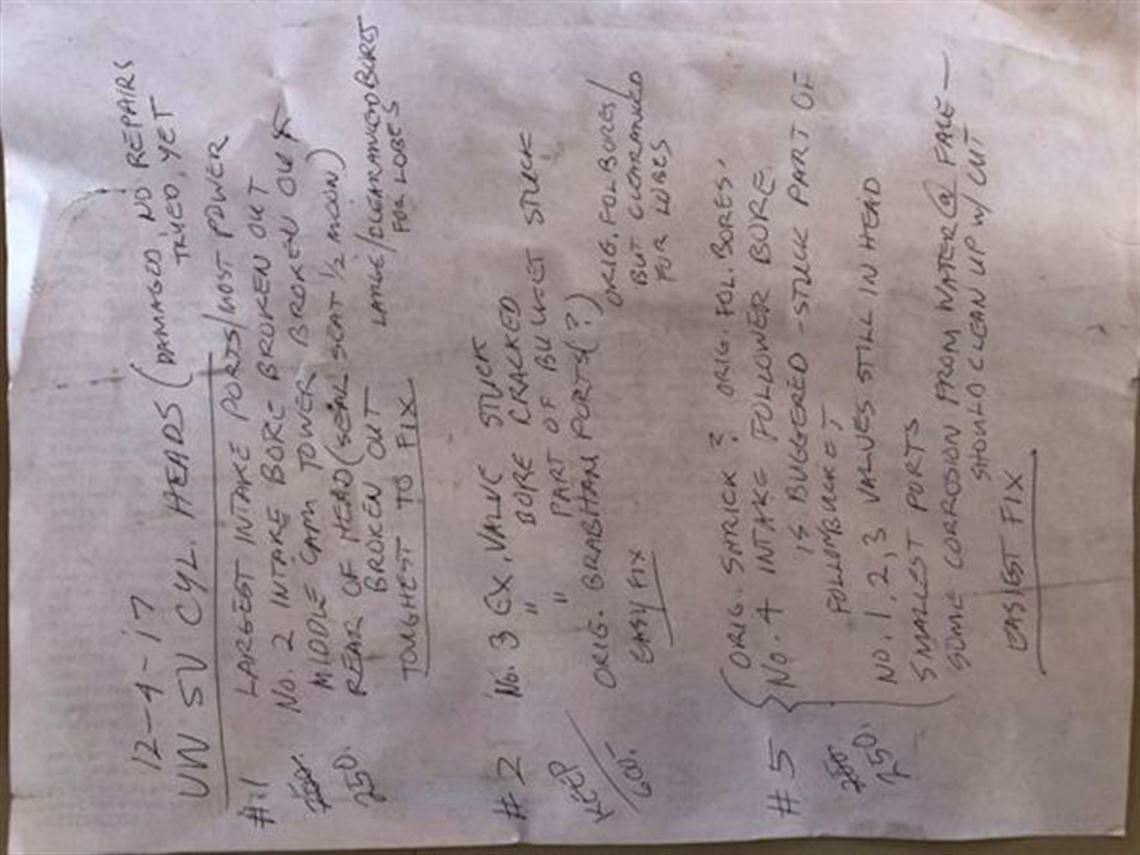 12-4-17
VW SV CYL. HEADS (DAMAGED, NO REPAIRS
TRIED, YET
#1 LARGEST INTAKE PORTS/MOST POWER
No. 2 INTAKE BORE BROKEN OUT
MIDDLE CAM TOWER BROKEN OUT
REAR OF HEAD (SEAL SEAT 1/2 MOON)
BROKEN OUT
LARGE/CLEARANCED BORES
FOR LOBES
TOUGHEST TO FIX
250.
#2 No. 3 EX. VALVE STUCK
" BORE CRACKED
" PART OF BUCKET STUCK
ORIG. BRABHAM PORTS(?)
ORIG. FOL BORES/
BUT CLEARANCED
FOR LOBES
KEEP
600.
EASY FIX
#5 ORIG. ? ORIG. FOL. BORES.
No. 4 INTAKE FOLLOWER BORE
IS BUGGERED - STUCK PART OF
NO. 1, 2, 3 VALVES STILL IN HEAD
SMALLEST PORTS
SOME CORROSION FROM WATER @ FACE -
SHOULD CLEAN UP W/ CUT
250.
EASIEST FIX